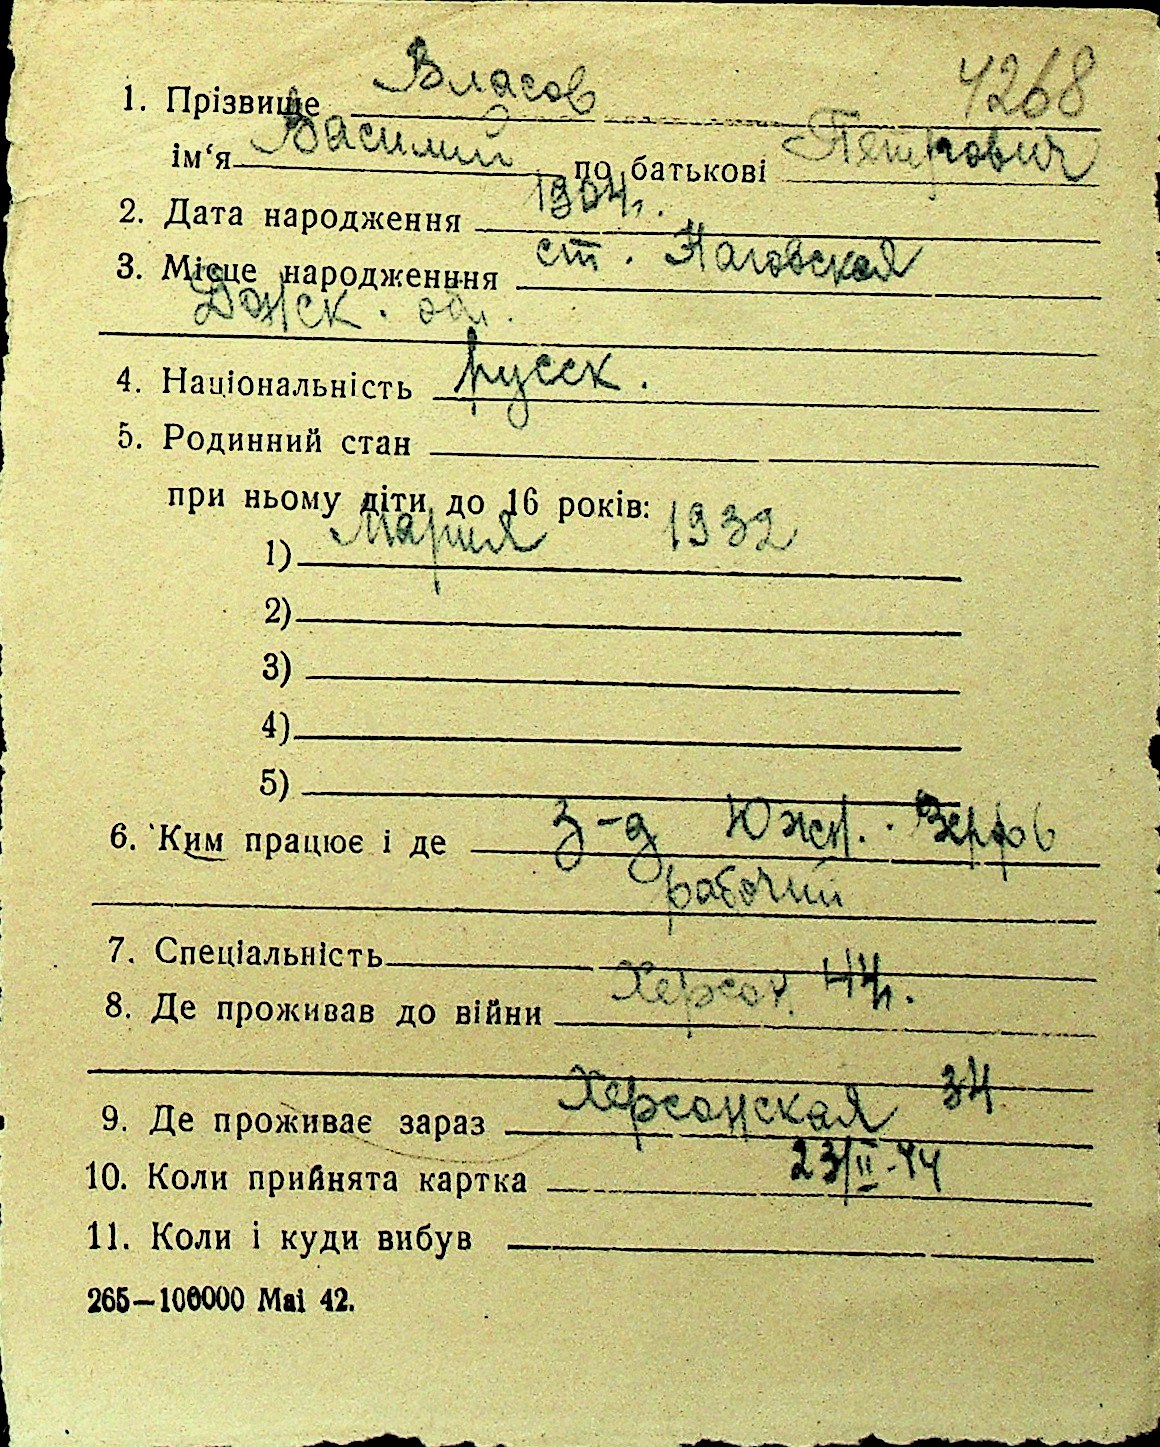 4268
1. Прізвище Власов
ім‘я Василий по батькові Петрович
2. Дата народження 1904г.
3. Місце народженння ст. Наговская
Донск. обл.
4. Національність русск.
5. Родинний стан
при ньому діти до 16 років:
1) Мария 1932
2)
3)
4)
5)
6. Ким працює і де з-д Южн.
рабочий
7. Спеціальність
8. Де проживав до війни Херсон. 44г.
9. Де проживає зараз Херсонская 34
10. Коли прийнята картка 23/II-44
11. Коли і куди вибув
265—100000 Mai 42.